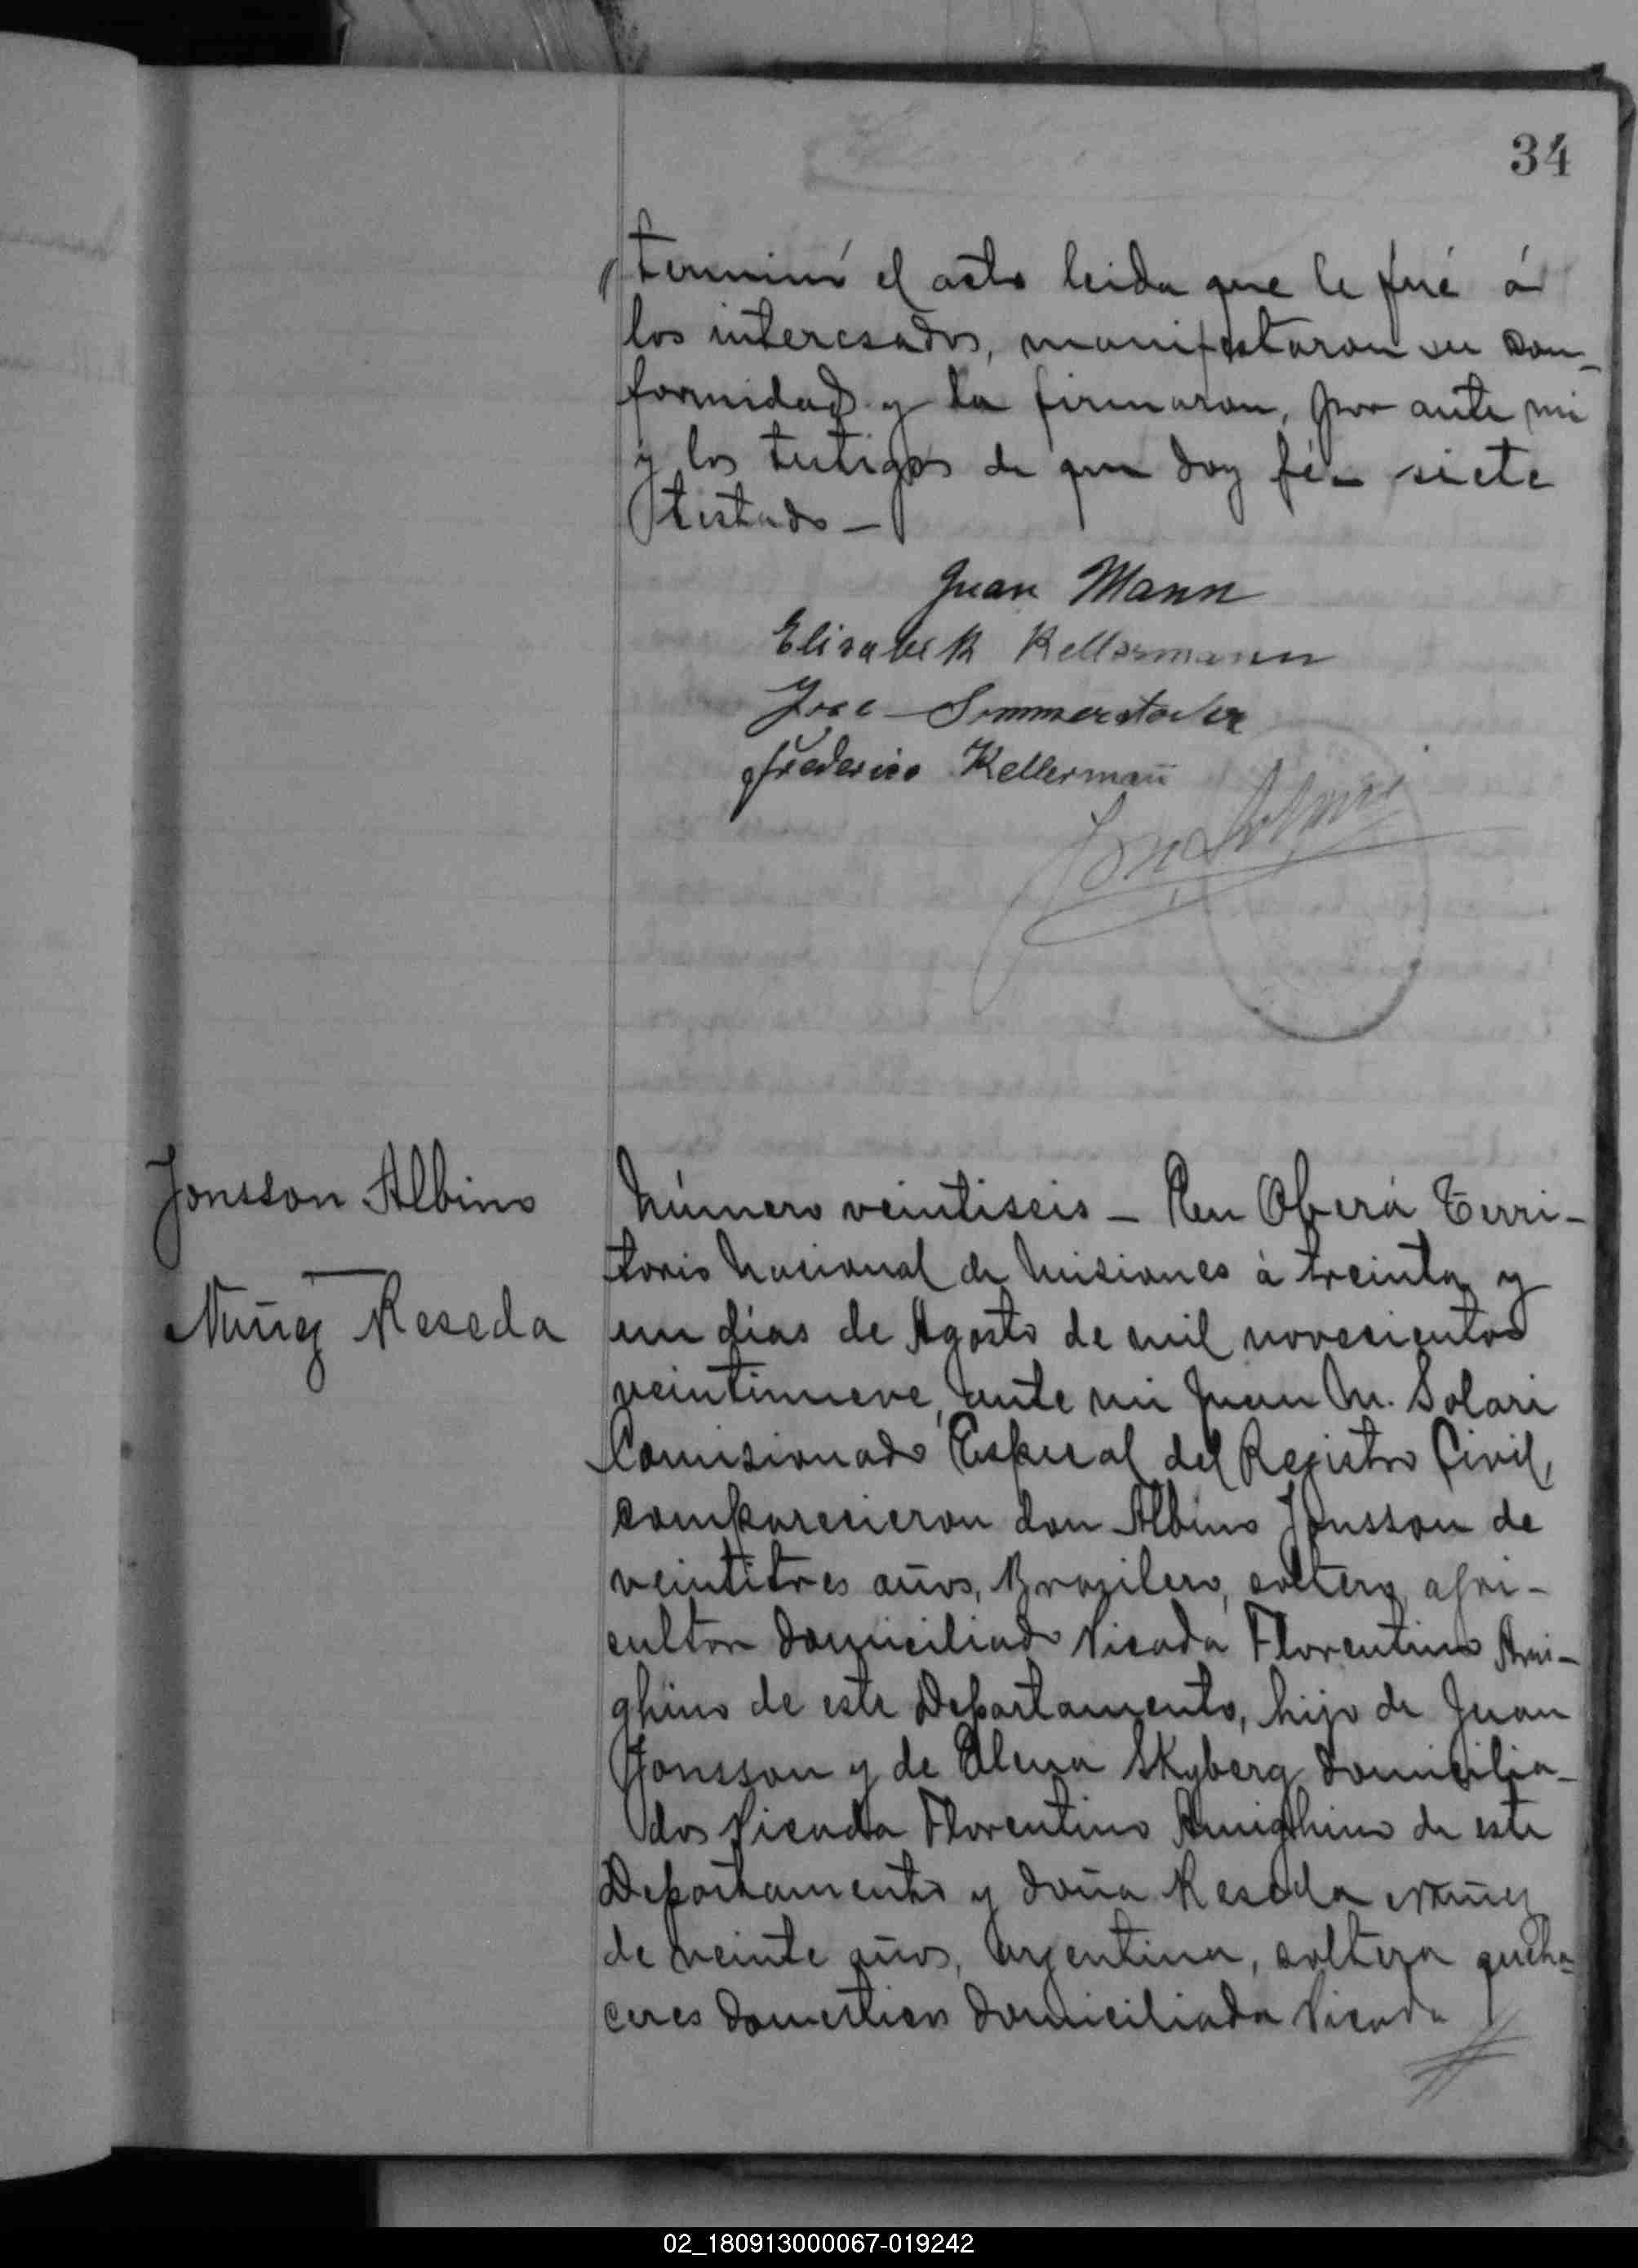 34
terminó el acto leida que le fué á
los interesados, manifestaron su con-
formidad y la firmaron, por ante mi
y los testigos de que doy fé - siete
testado -
Juan Mann
Elisabeth Kellermann
Jose Sommerstader
frederico Kellermañ
Jonsson Albino
Nuñez Reseda
Número veintiseis - En Oberá Terri-
torio Nacional de Misiones á treinta y
un dias de Agosto de mil novecientos
veintinueve, ante mi Juan M. Solari
Comisionado Especial del Rejistro Civil,
comparecieron don Albino Jonsson de
veintitres años, Brazilero, soltero, agri-
cultor domiciliado Picada Florentino Ami-
ghino de este Departamento, hijo de Juan
Jonsson y de Elena Skyberg domicilia-
dos Picada Florentino Amighino de este
Departamento y doña Reseda Nuñez
de veinte años, argentina, soltera queha-
ceres domesticos domiciliada Picada
02_180913000067-019242